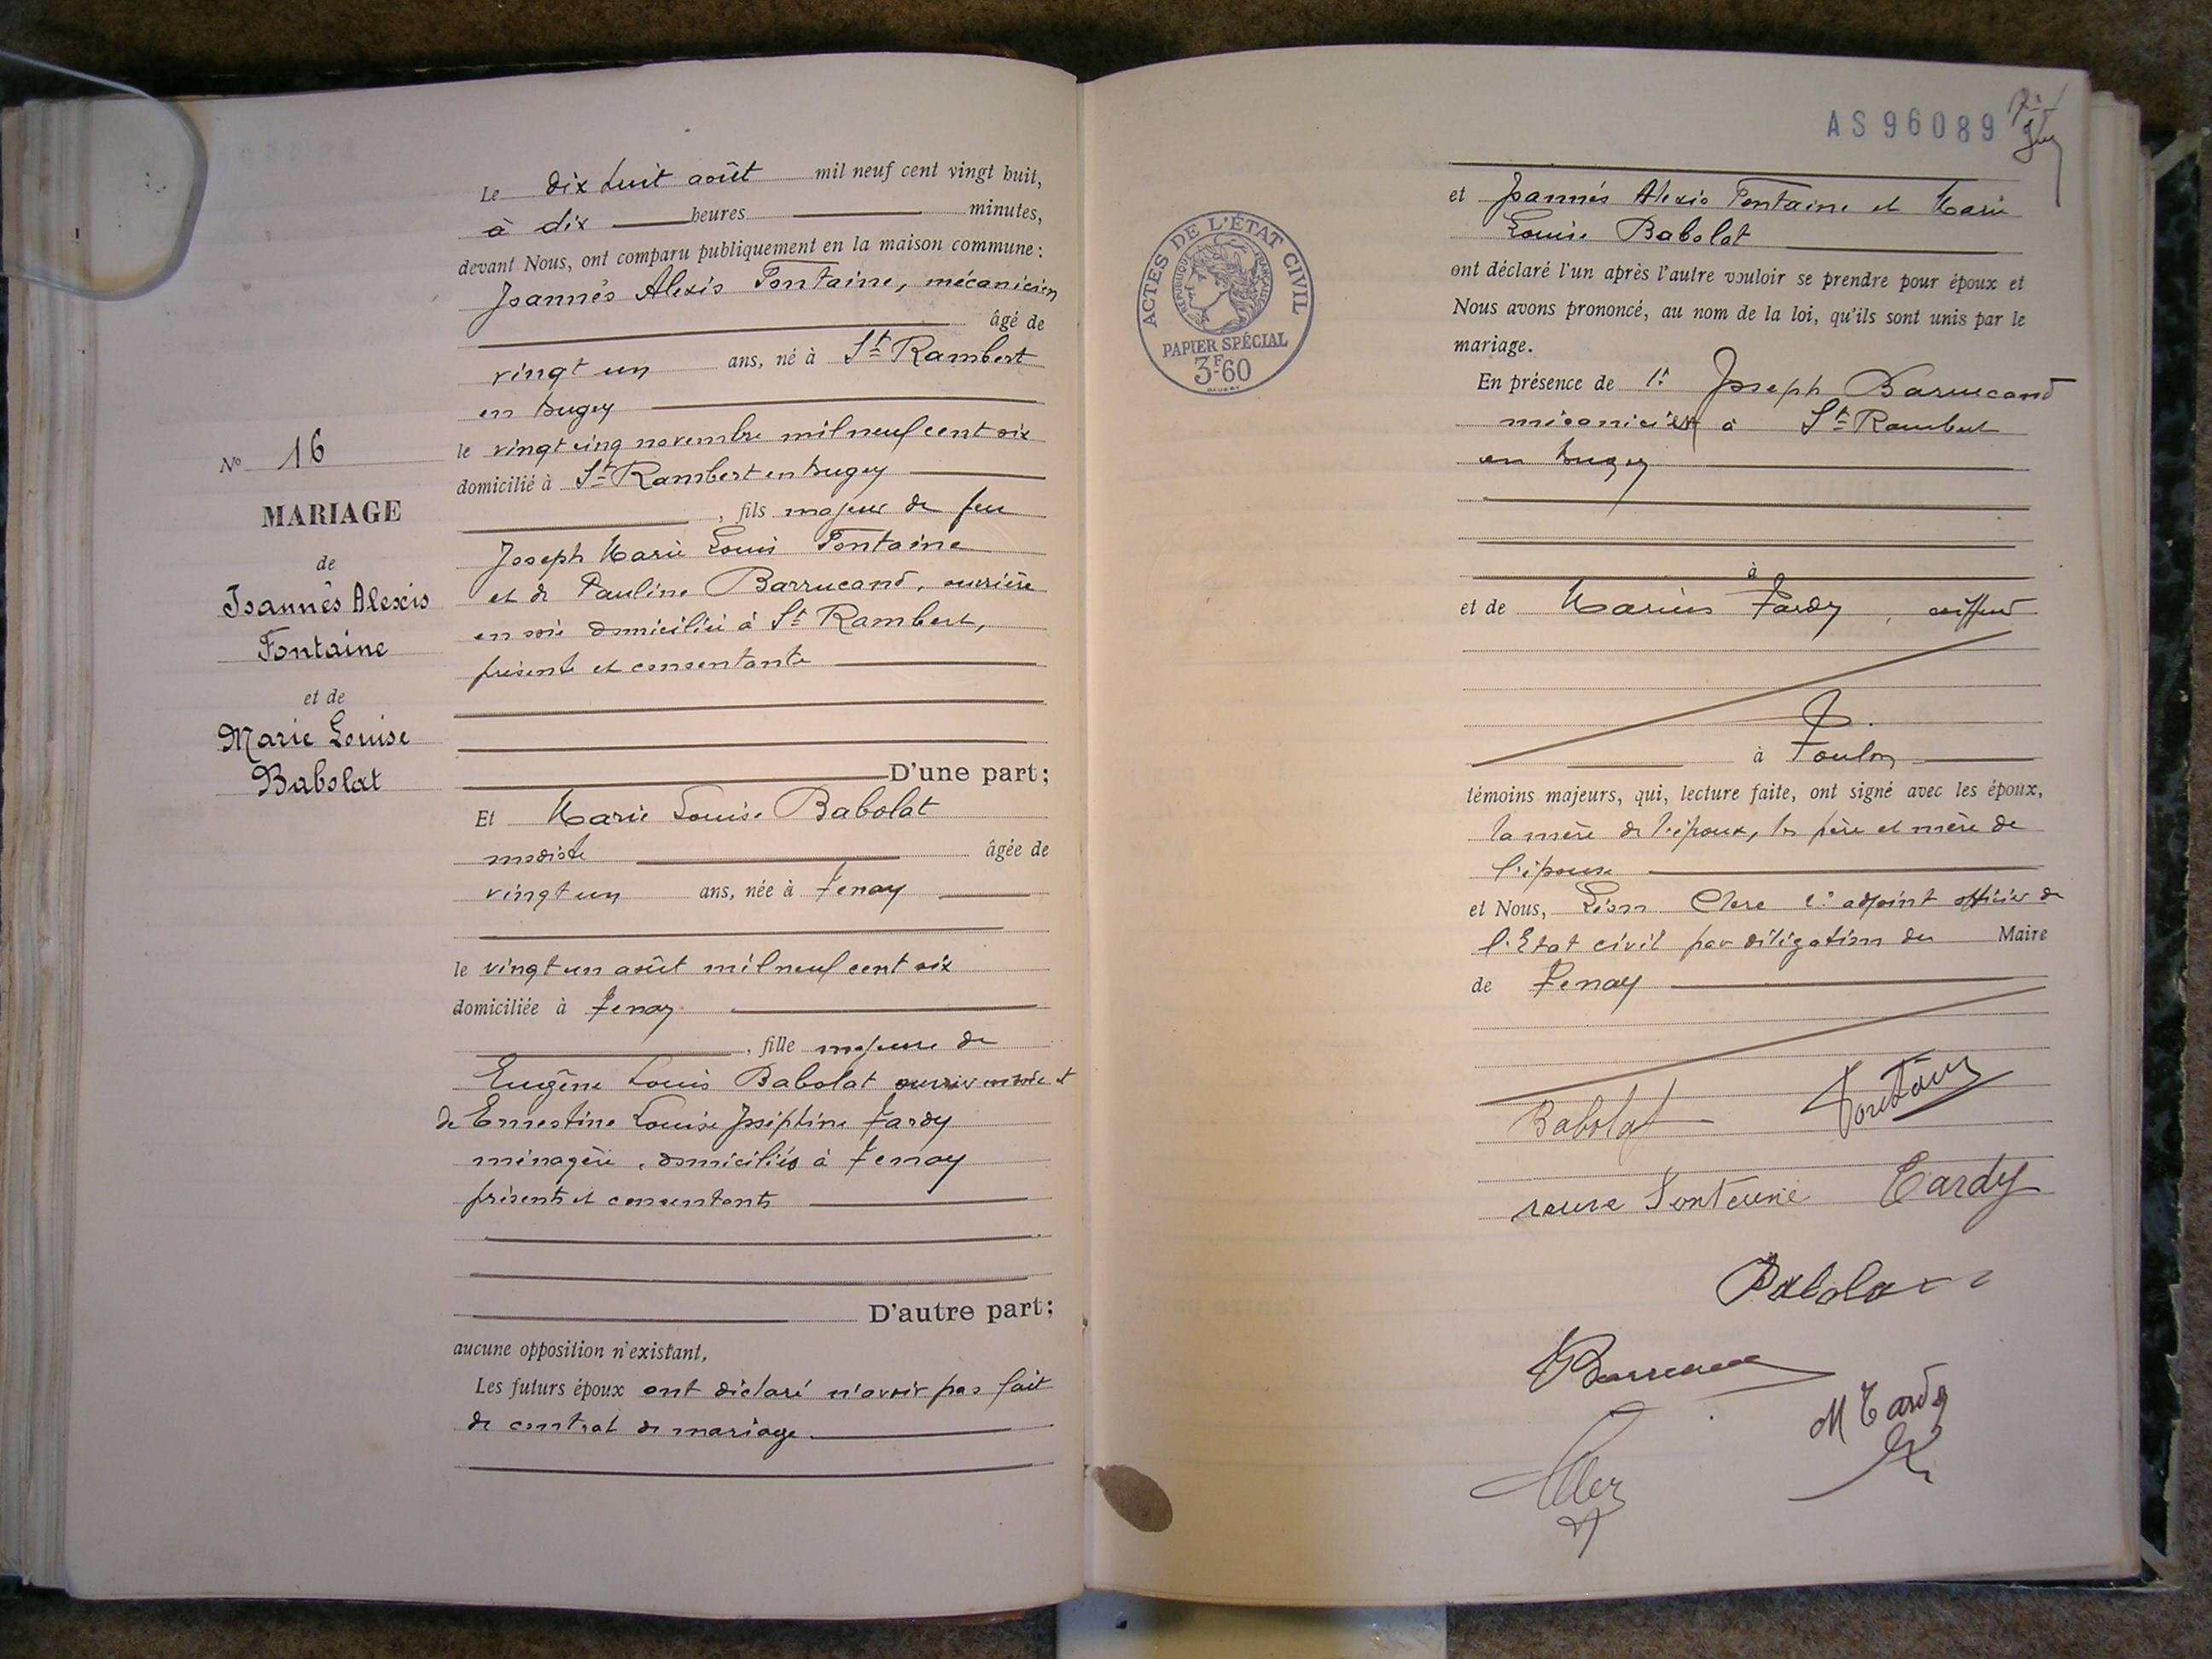 N° 16
MARIAGE
de
Joannès Alexis
Fontaine
et de
Marie Louise
Babolat
Le dix huit août mil neuf cent vingt huit,
à dix heures minutes,
devant Nous, ont comparu publiquement en la maison commune :
Joannès Alexis Fontaine, mécanicien
âgé de
vingt un ans, né à St Rambert
en Bugey
le vingt cinq novembre mil neuf cent six
domicilié à St Rambert en Bugey
, fils majeur de feu
Joseph Marie Louis Fontaine
et de Pauline Barrucand, ouvrière
en soie domiciliée à St Rambert,
présente et consentante
D'une part;
Et Marie Louise Babolat
modiste âgée de
vingt un ans, née à Tenay
le vingt un août mil neuf cent six
domiciliée à Tenay
, fille majeure de
Eugène Louis Babolat ouvrier en soie et
de Ernestine Louise Joséphine Tardy
ménagère, domiciliés à Tenay
présents et consentants
D'autre part;
aucune opposition n'existant,
Les futurs époux ont déclaré n'avoir pas fait
de contrat de mariage.
AS 96089
ACTES DE L'ÉTAT CIVIL
RÉPUBLIQUE FRANÇAISE
PAPIER SPÉCIAL
3F60
et Joannès Alexis Fontaine et Marie
Louise Babolat
ont déclaré l'un après l'autre vouloir se prendre pour époux et
Nous avons prononcé, au nom de la loi, qu'ils sont unis par le
mariage.
En présence de 1° Joseph Barrucand
mécanicien à St Rambert
en Bugey
à
et de Marius Tardy, coiffeur
à Toulon
témoins majeurs, qui, lecture faite, ont signé avec les époux,
la mère de l'époux, les père et mère de
l'épouse
et Nous, Léon Clerc 1er adjoint officier de
l'Etat civil par délégation du Maire
de Tenay
Babolat Fontaine
veuve Fontaine Tardy
Babolat
Barrucand
M Tardy